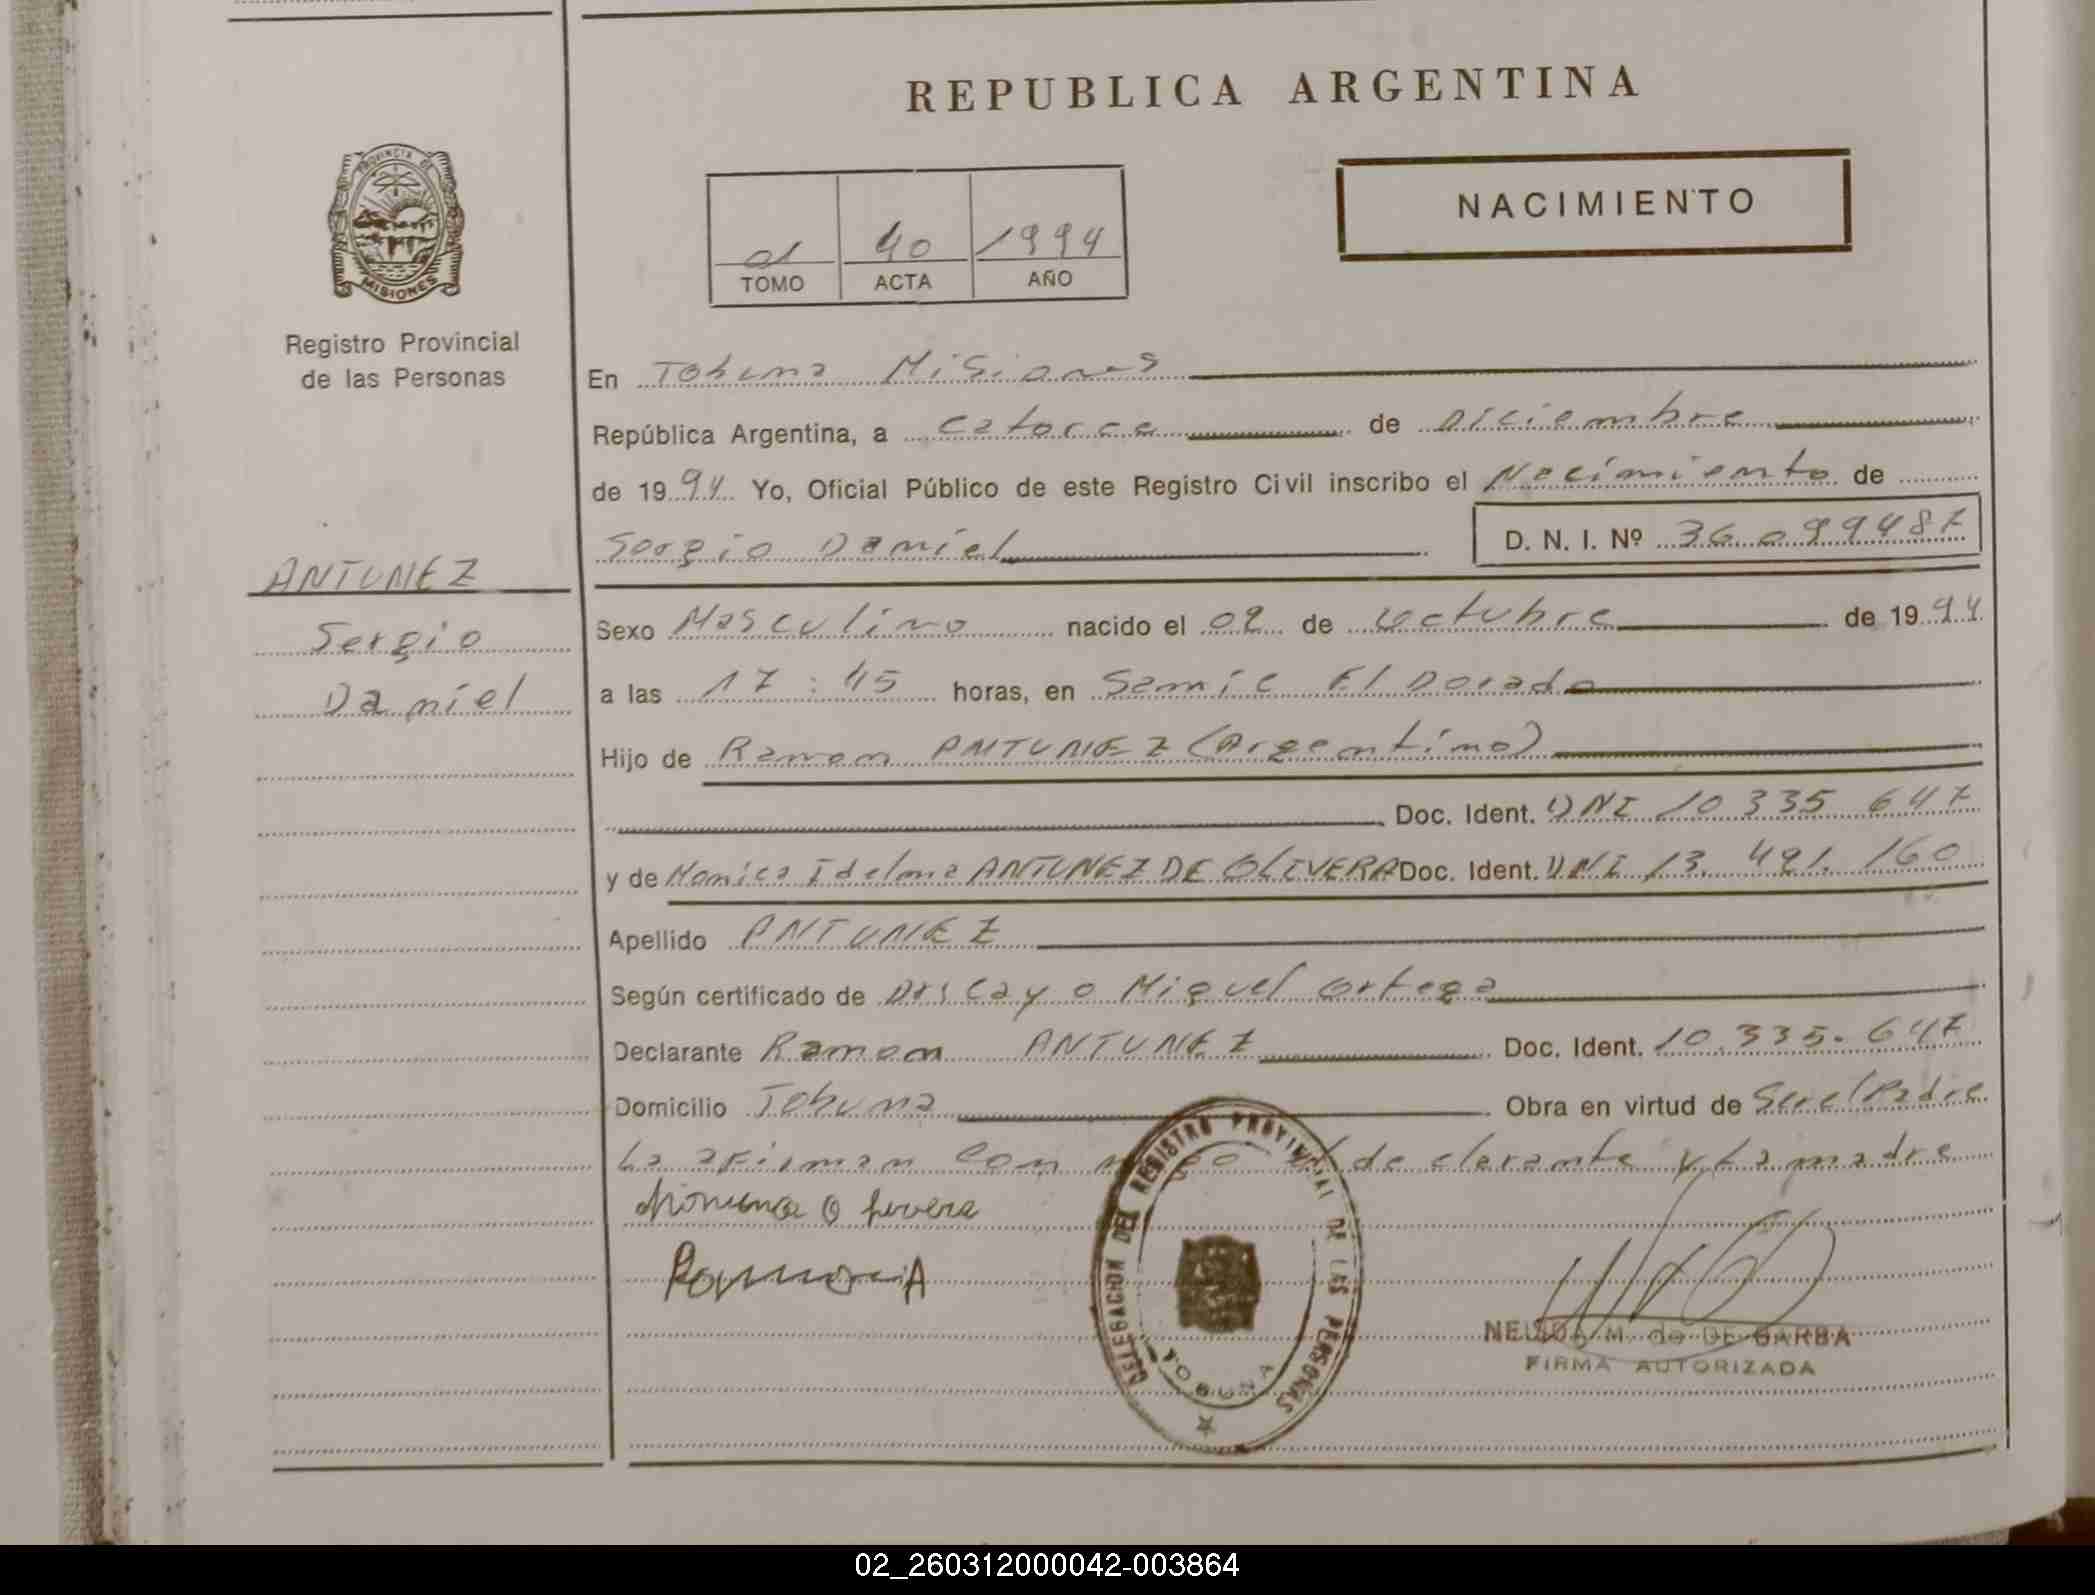 REPUBLICA ARGENTINA
NACIMIENTO
PROVINCIA DE
MISIONES
01 40 1994
TOMO ACTA AÑO
Registro Provincial
de las Personas
En Tobuna Misiones
República Argentina, a catorce de Diciembre
de 1994 Yo, Oficial Público de este Registro Civil inscribo el Nacimiento de
Sergio Daniel D. N. I. Nº 36.099487
ANTUNEZ
Sergio
Daniel
Sexo Masculino nacido el 02 de octubre de 1994
a las 17:45 horas, en Samic El Dorado
Hijo de Ramon ANTUNEZ (Argentino)
Doc. Ident. DNI 10 335 647
y de Monica Idelma ANTUNEZ DE OLIVERA Doc. Ident. DNI 13.491.160
Apellido ANTUNEZ
Según certificado de Miguel Ortega
Declarante Ramon ANTUNEZ Doc. Ident. 10.335.647
Domicilio Tobuna Obra en virtud de Ser el Padre
La afirman con declarante y La madre
DELEGACION DEL REGISTRO PROVINCIAL DE LAS PERSONAS
TOBUNA
M. de DE BARBA
FIRMA AUTORIZADA
02_260312000042-003864